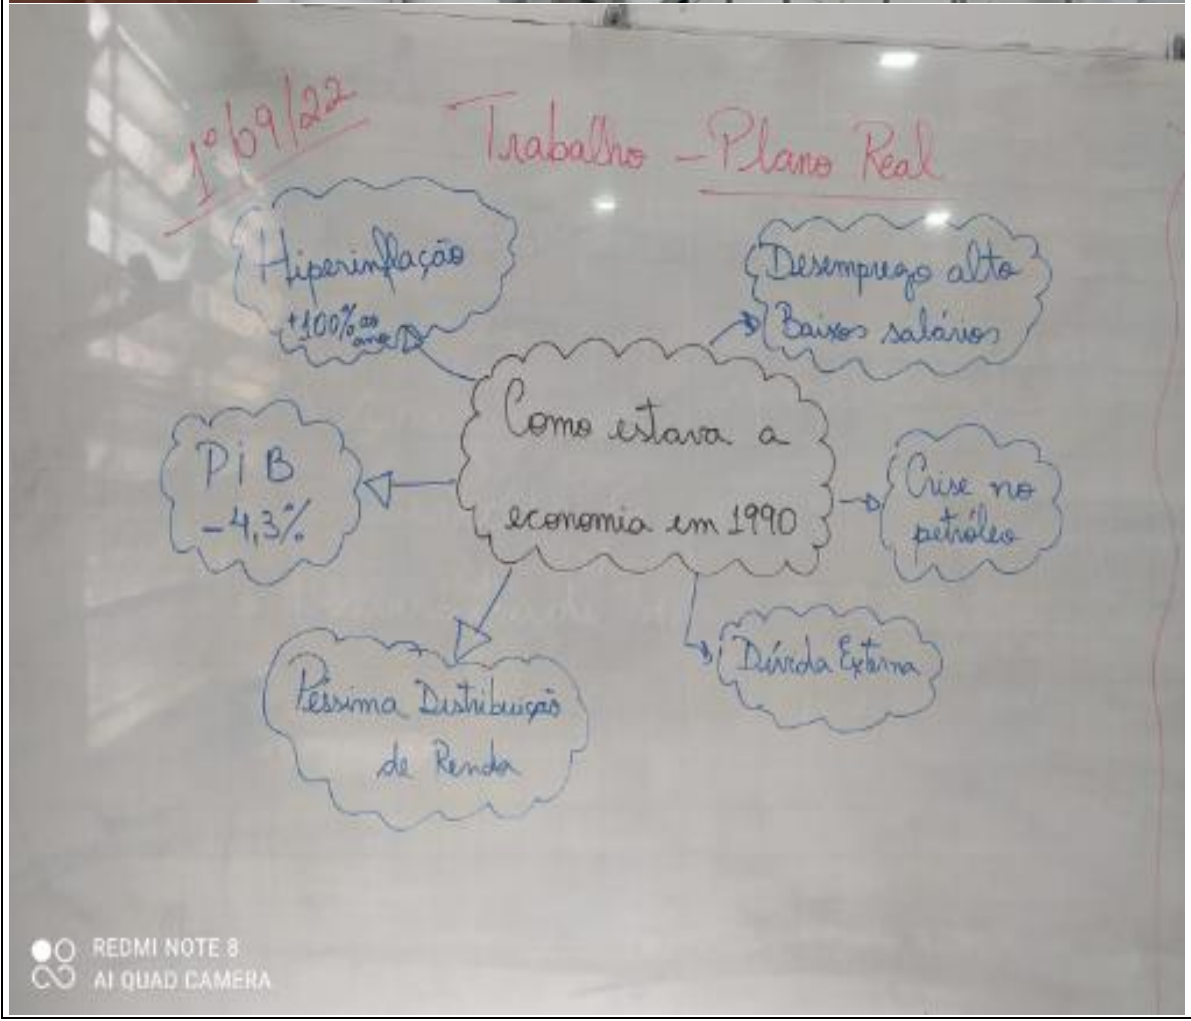 1º/09/22
Trabalho - Plano Real
Hiperinflação
+100% ao
ano
Desemprego alto
Baixos salários
Como estava a
economia em 1990
PiB
-4,3%
Crise no
petróleo
Péssima Distribuição
de Renda
Dívida Externa
REDMI NOTE 8
AI QUAD CAMERA